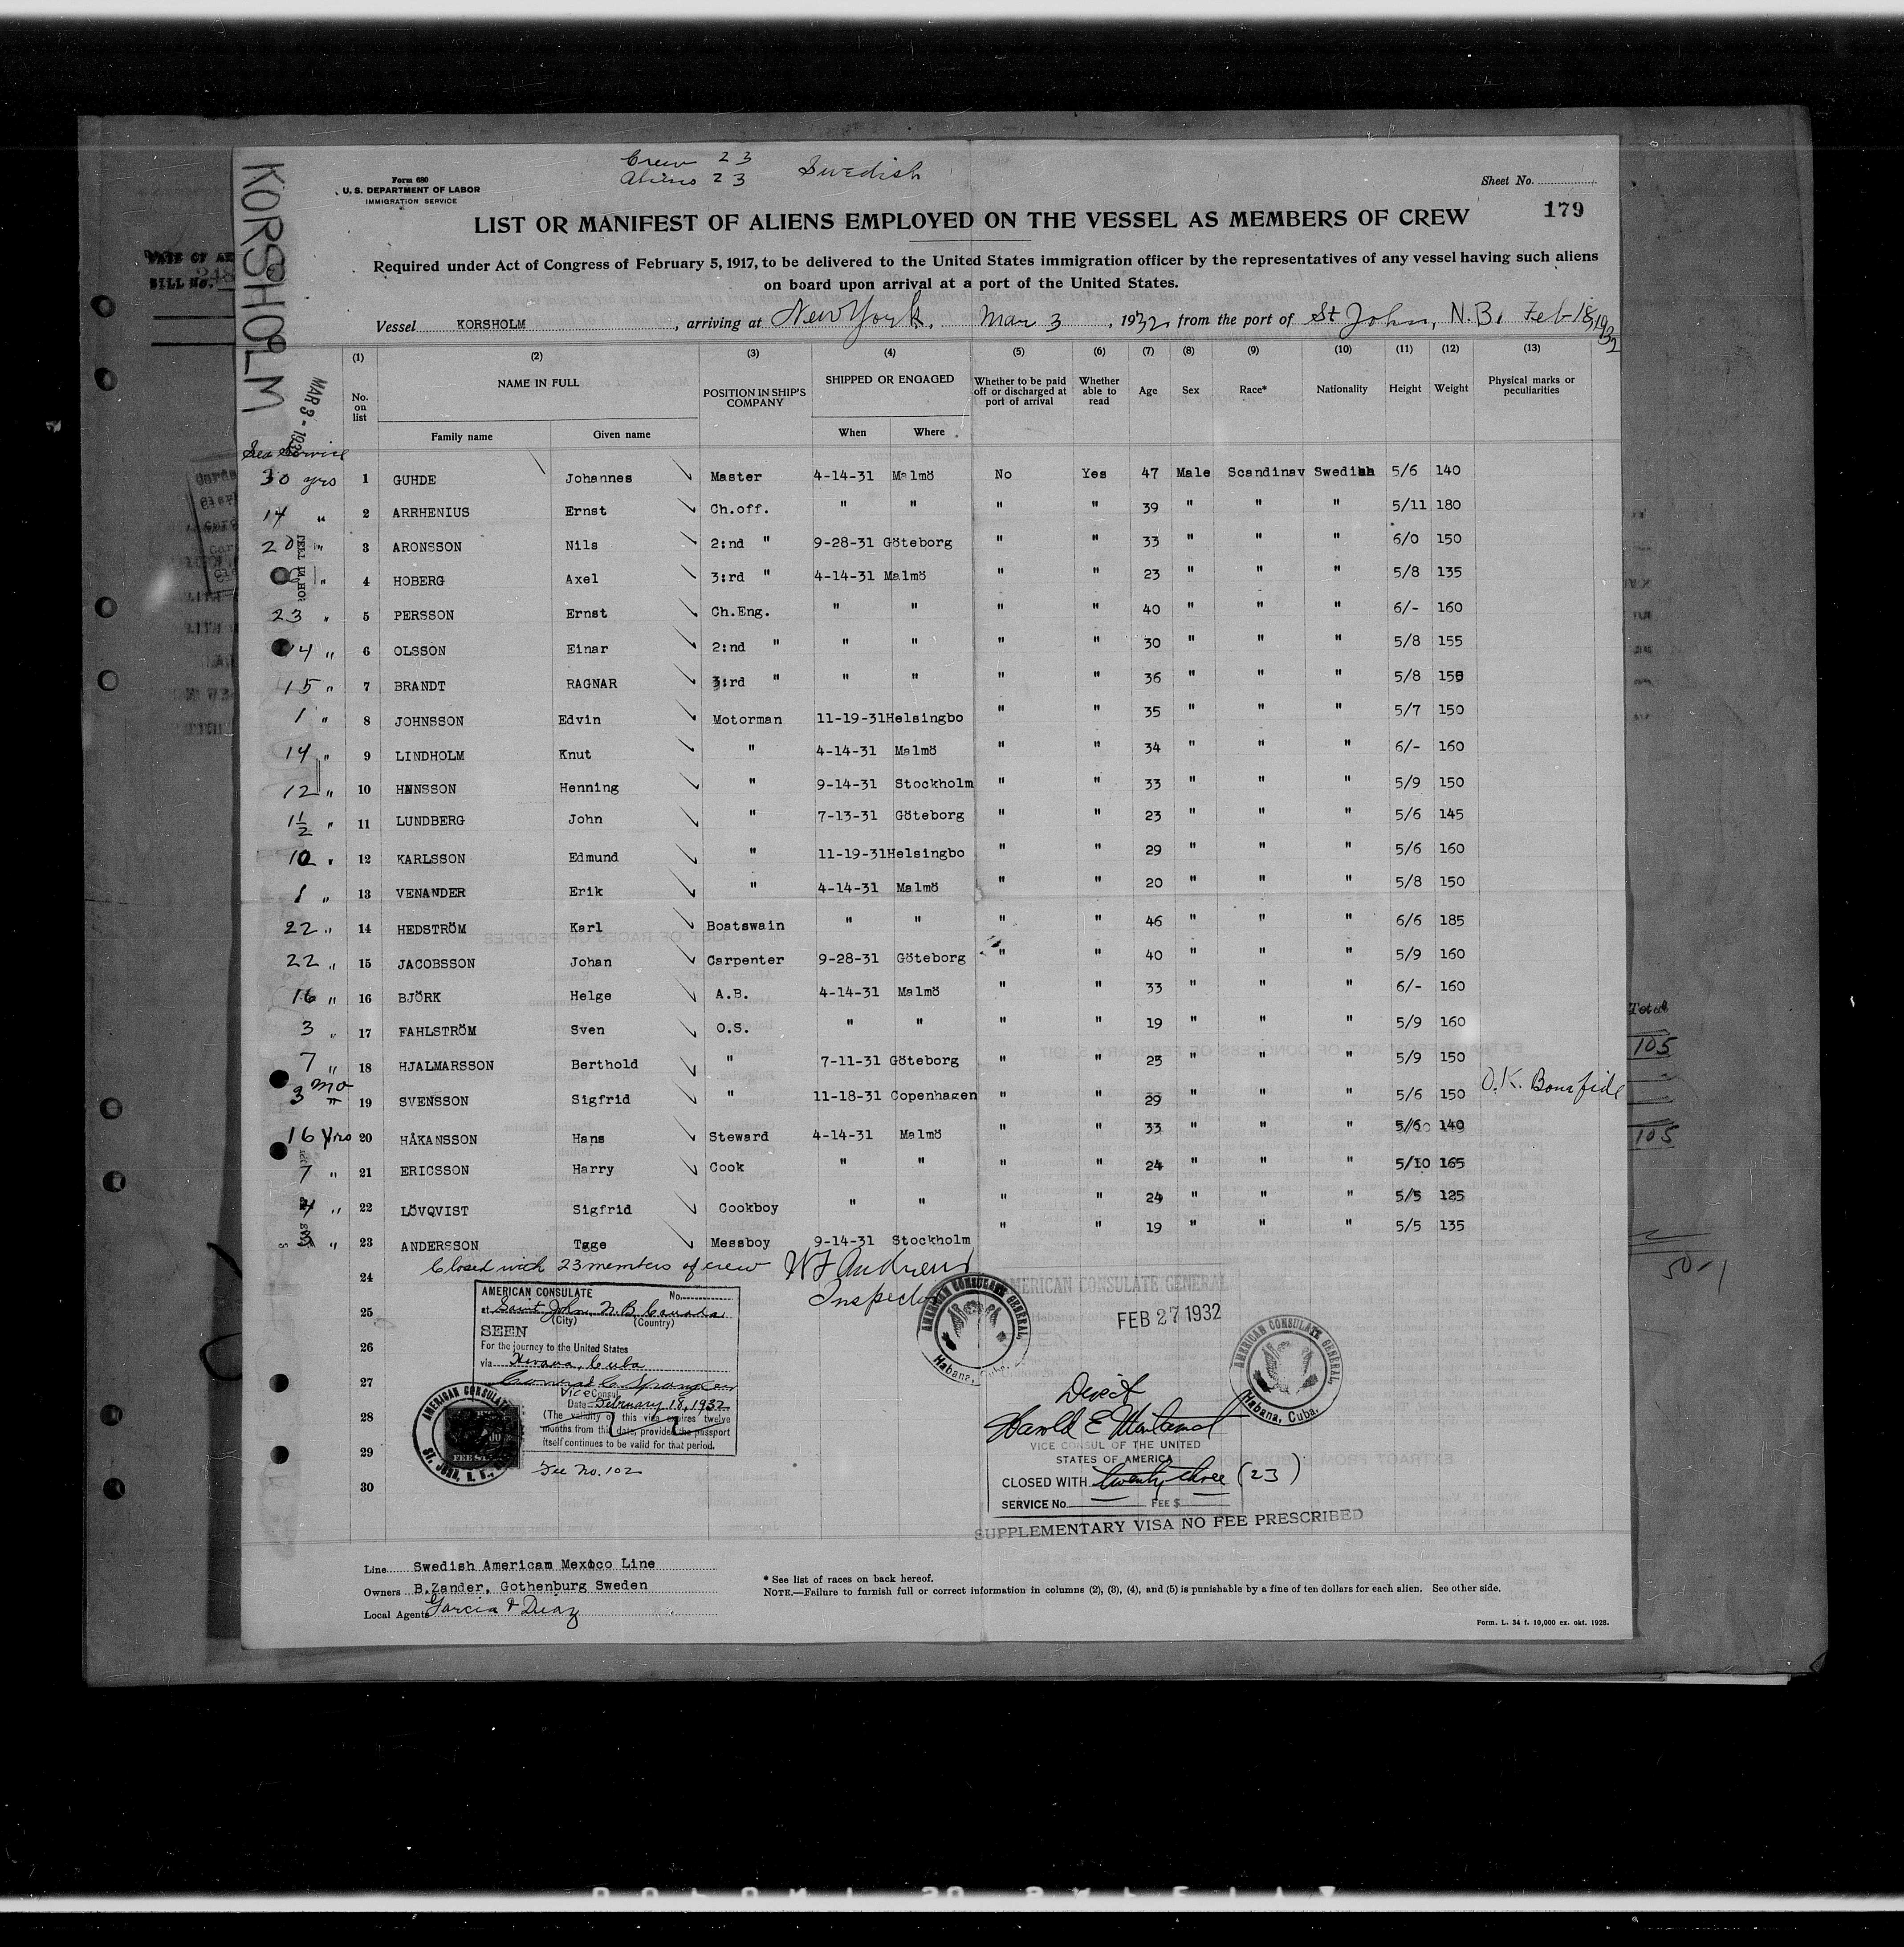 Crew 23
Aliens 23 Swedish
Form 680
U. S. DEPARTMENT OF LABOR
IMMIGRATION SERVICE
Sheet No.
179
KORSHOLM
LIST OR MANIFEST OF ALIENS EMPLOYED ON THE VESSEL AS MEMBERS OF CREW
Required under Act of Congress of February 5, 1917, to be delivered to the United States immigration officer by the representatives of any vessel having such aliens
on board upon arrival at a port of the United States.
Vessel KORSHOLM, arriving at New York, Mar 3, 1932, from the port of St John, N.B. Feb 18, 1932
(1) (2) (3) (4) (5) (6) (7) (8) (9) (10) (11) (12) (13)
No. on list NAME IN FULL POSITION IN SHIP'S COMPANY SHIPPED OR ENGAGED Whether to be paid off or discharged at port of arrival Whether able to read Age Sex Race* Nationality Height Weight Physical marks or peculiarities
Family name Given name When Where
MAR 3 - 1932
Sea Service
30 yrs 1 GUHDE Johannes Master 4-14-31 Malmö No Yes 47 Male Scandinav Swedish 5/6 140
14 " 2 ARRHENIUS Ernst Ch.off. " " " " 39 " " " 5/11 180
20 " 3 ARONSSON Nils 2:nd " 9-28-31 Göteborg " " 33 " " " 6/0 150
8 " 4 HOBERG Axel 3:rd " 4-14-31 Malmö " " 23 " " " 5/8 135
23 " 5 PERSSON Ernst Ch.Eng. " " " " 40 " " " 6/- 160
14 " 6 OLSSON Einar 2:nd " " " " " 30 " " " 5/8 155
15 " 7 BRANDT RAGNAR 3:rd " " " " " 36 " " " 5/8 155
1 " 8 JOHNSSON Edvin Motorman 11-19-31 Helsingbo " " 35 " " " 5/7 150
14 " 9 LINDHOLM Knut " 4-14-31 Malmö " " 34 " " " 6/- 160
12 " 10 HANSSON Henning " 9-14-31 Stockholm " " 33 " " " 5/9 150
1 1/2 " 11 LUNDBERG John " 7-13-31 Göteborg " " 23 " " " 5/6 145
10 " 12 KARLSSON Edmund " 11-19-31 Helsingbo " " 29 " " " 5/6 160
1 " 13 VENANDER Erik " 4-14-31 Malmö " " 20 " " " 5/8 150
22 " 14 HEDSTRÖM Karl Boatswain " " " " 46 " " " 6/6 185
22 " 15 JACOBSSON Johan Carpenter 9-28-31 Göteborg " " 40 " " " 5/9 160
16 " 16 BJÖRK Helge A.B. 4-14-31 Malmö " " 33 " " " 6/- 160
3 " 17 FAHLSTRÖM Sven O.S. " " " " 19 " " " 5/9 160
7 " 18 HJALMARSSON Berthold " 7-11-31 Göteborg " " 25 " " " 5/9 150
3 mo " 19 SVENSSON Sigfrid " 11-18-31 Copenhagen " " 29 " " " 5/6 150 O.K. Bonafide
16 yrs 20 HÅKANSSON Hans Steward 4-14-31 Malmö " " 33 " " " 5/6 140
7 " 21 ERICSSON Harry Cook " " " " 24 " " " 5/10 165
4 " 22 LÖVQVIST Sigfrid Cookboy " " " " 24 " " " 5/5 125
3 " 23 ANDERSSON Tage Messboy 9-14-31 Stockholm " " 19 " " " 5/5 135
Closed with 23 members of crew W F Andrews
Inspector
24
25
26
27
28
29
30
AMERICAN CONSULATE No.
at Saint John, N.B. Canada
(City) (Country)
SEEN
For the journey to the United States
via Havana, Cuba
Vice Consul
Date February 18, 1932
(The validity of this visa expires twelve
months from this date, provided the passport
itself continues to be valid for that period.
Fee No. 102
AMERICAN CONSULATE
ST. JOHN, N. B.
AMERICAN CONSULATE GENERAL
FEB 27 1932
AMERICAN CONSULATE GENERAL,
Habana, Cuba.
AMERICAN CONSULATE GENERAL,
Habana, Cuba.
Direct
Harold E
VICE CONSUL OF THE UNITED
STATES OF AMERICA
CLOSED WITH twenty three (23)
SERVICE No. FEE $
SUPPLEMENTARY VISA NO FEE PRESCRIBED
Line Swedish American Mexico Line
Owners B.Zander, Gothenburg Sweden
Local Agents Garcia & Diaz
* See list of races on back hereof.
NOTE.—Failure to furnish full or correct information in columns (2), (3), (4), and (5) is punishable by a fine of ten dollars for each alien. See other side.
Form. L. 34 f. 10,000 ex. okt. 1928.
BILL No.
Total
105
105